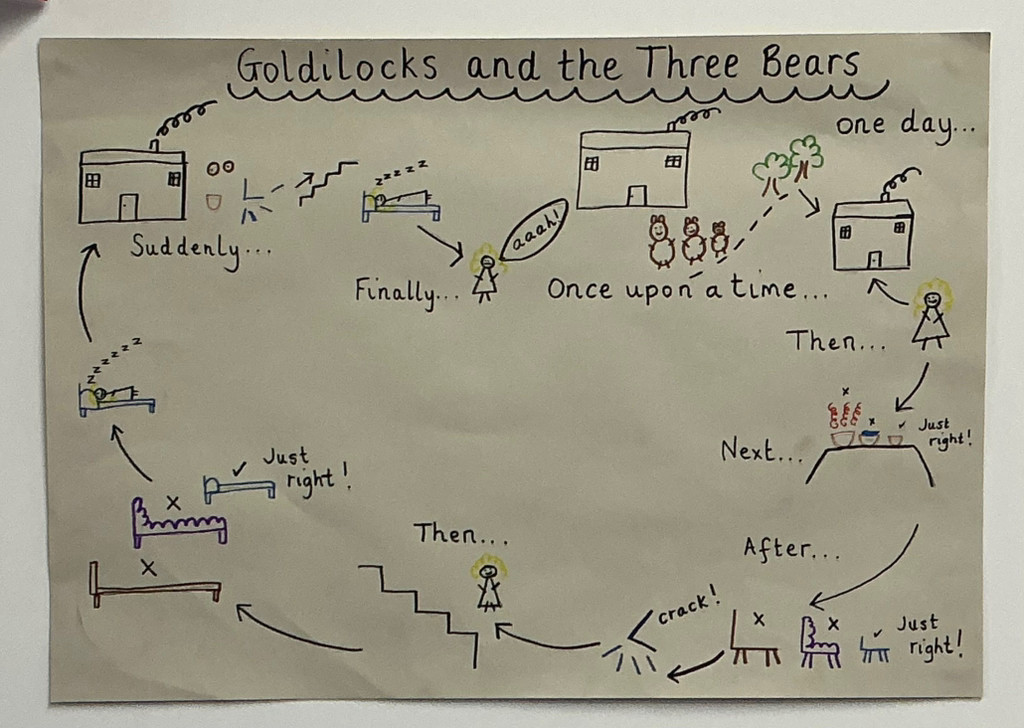 Goldilocks and the Three Bears
one day...
Once upon a time...
aaah!
Then...
Next...
Just
right!
After...
Just
right!
crack!
Then...
Just
right!
z z z z z z
Suddenly...
z z z z z z
Finally...